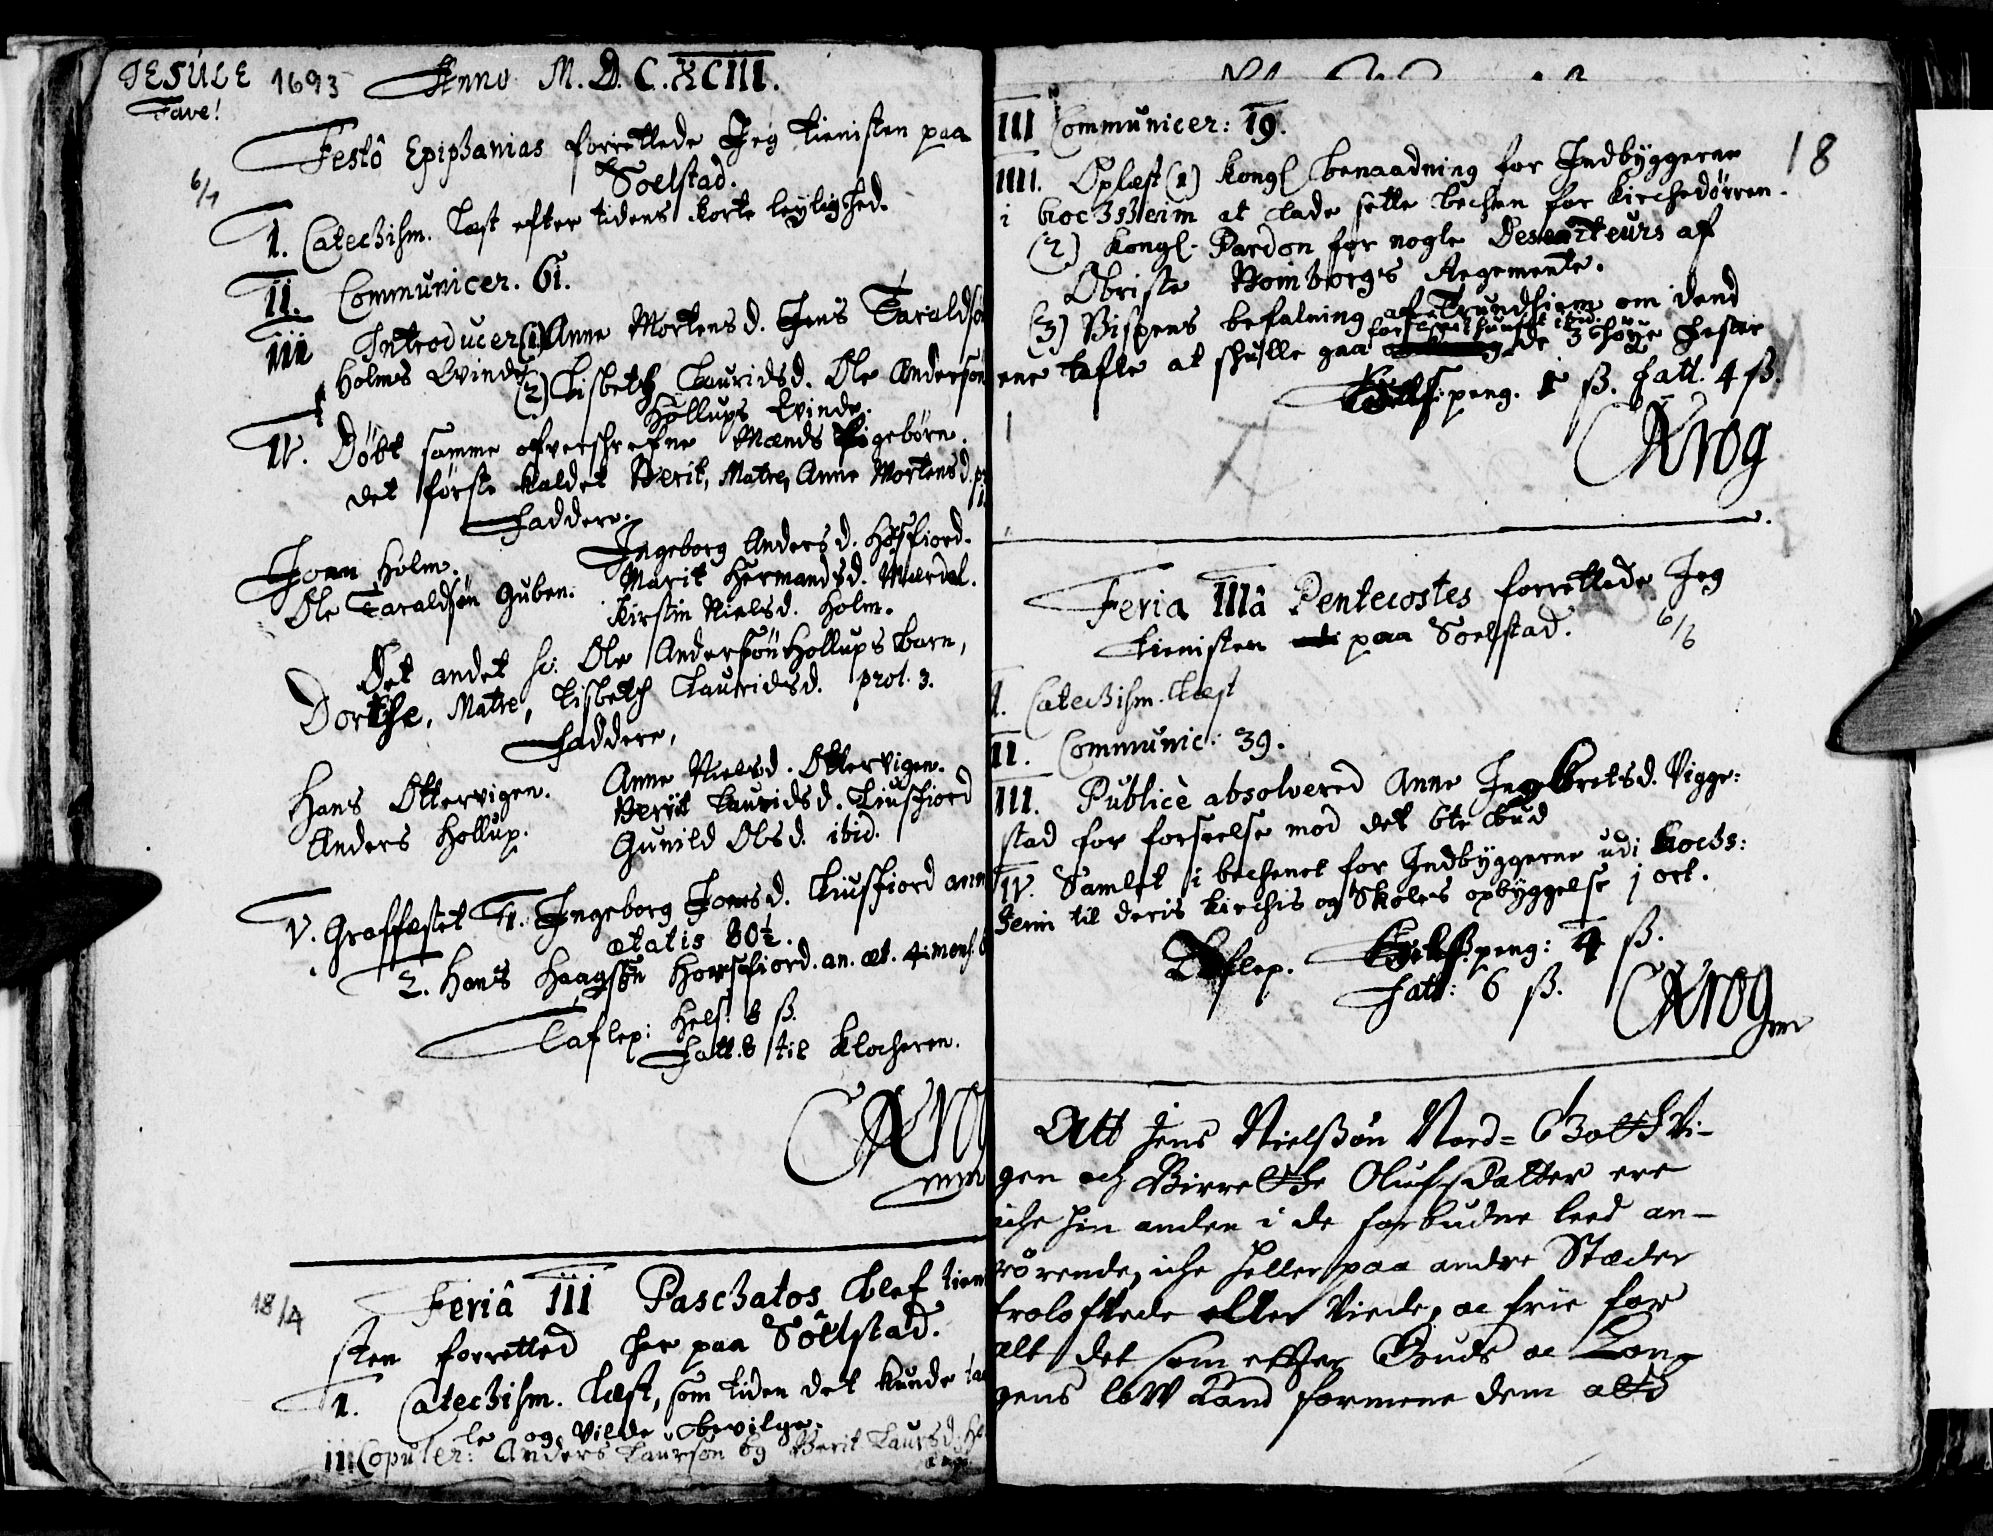 JESULE 1693 Anno M.D.C.XCIII.
Fave!
Festô Epiphanias forrettede Jeg tienisten paa
Soelstad.
6/1
1. Catechism. Læst efter tidens korte leylighed.
II. Communicer. 61.
III Introducer (1) Anne Mortensd. Jens Taraldsøn
Holms Qvinde
(2) Lisbeth Lauridsd. Ole Andersøn
Hollups Qvinde.
IV. Døbt samme ofverschrefne Mænds Pigebørn.
det første kaldet Berit, Matre, Anne Mortensd.
Faddere.
Joen Holm. Ingeborg Andersd. Hosfiord.
Ole Taraldsøn Guben. Marit Hermandsd. Mærdal.
Kirstin Nielsd. Holm.
Det andet sc: Ole Andersøn Hollups barn,
Dorthe, Matre, Lisbeth Lauridsd. prol. 3.
Faddere,
Hans Ottervigen. Anne Nielsd. Ottervigen.
Anders Hollup. Berit Lauridsd. Liusfiord
Gunild Olsd. ibid.
V. Graffæstet 1. Ingeborg Joensd. Liusfiord
ætatis 80½.
2. Hans Haagsøn Horsfiord. an. æt. 4 mens.
Taflep: Hels: 8 ß.
Fatt. 8 til Klocheren.
CKrog
mm
18/4
Feriâ III Paschatos blef tieni
sten forretted her paa Söelstad.
1. Catechism. Læst, som tiden det kunde
le og vilde bevilge.
III Copuler: Anders Laursøn og Berit Laursd.
18
III Communicer: 19.
IIII. Oplæst (1) Kongl benaadning for Indbyggerne
i Kochsheim at lade sette bechen for kirchedørren.
(2) Kongl. Pardon for nogle Deserteurs af
Obriste Bomborgs Regemente.
(3) Bispens befalning af Trundhiem om dend
ene tafle at schulle gaa for Hospithuuset ibid. de 3 høye Fester
Helss: peng. 1 ß. Fatt. 4 ß.
CKrog
Feria IIIâ Pentecostes forrettede Jeg
tienisten paa Soelstad.
6/6
1. Catechism. Læst
II. Communic: 39.
III. Publicè absolvered Anne Ingebretsd. Vigge:
stad for forseelse mod det 6te bud
IV. Samlet i bechenet for Indbyggerne udi Kochs:
heim til deris kirchis og Skoles opbyggelse 1 ort.
Taflep. Helss: peng: 4 ß.
Fatt: 6 ß.
CKrog
mm
Att Jens Nielßøn Nord=Gotthvi-
gen och Birrethe Olufsdatter ere
iche hin anden i de forbudne leed an-
rørende, iche heller paa andre Stæder
troloftede eller Viede, oc frie for
alt det som efther Guds oc Kon-
gens loW Kand formene dem att